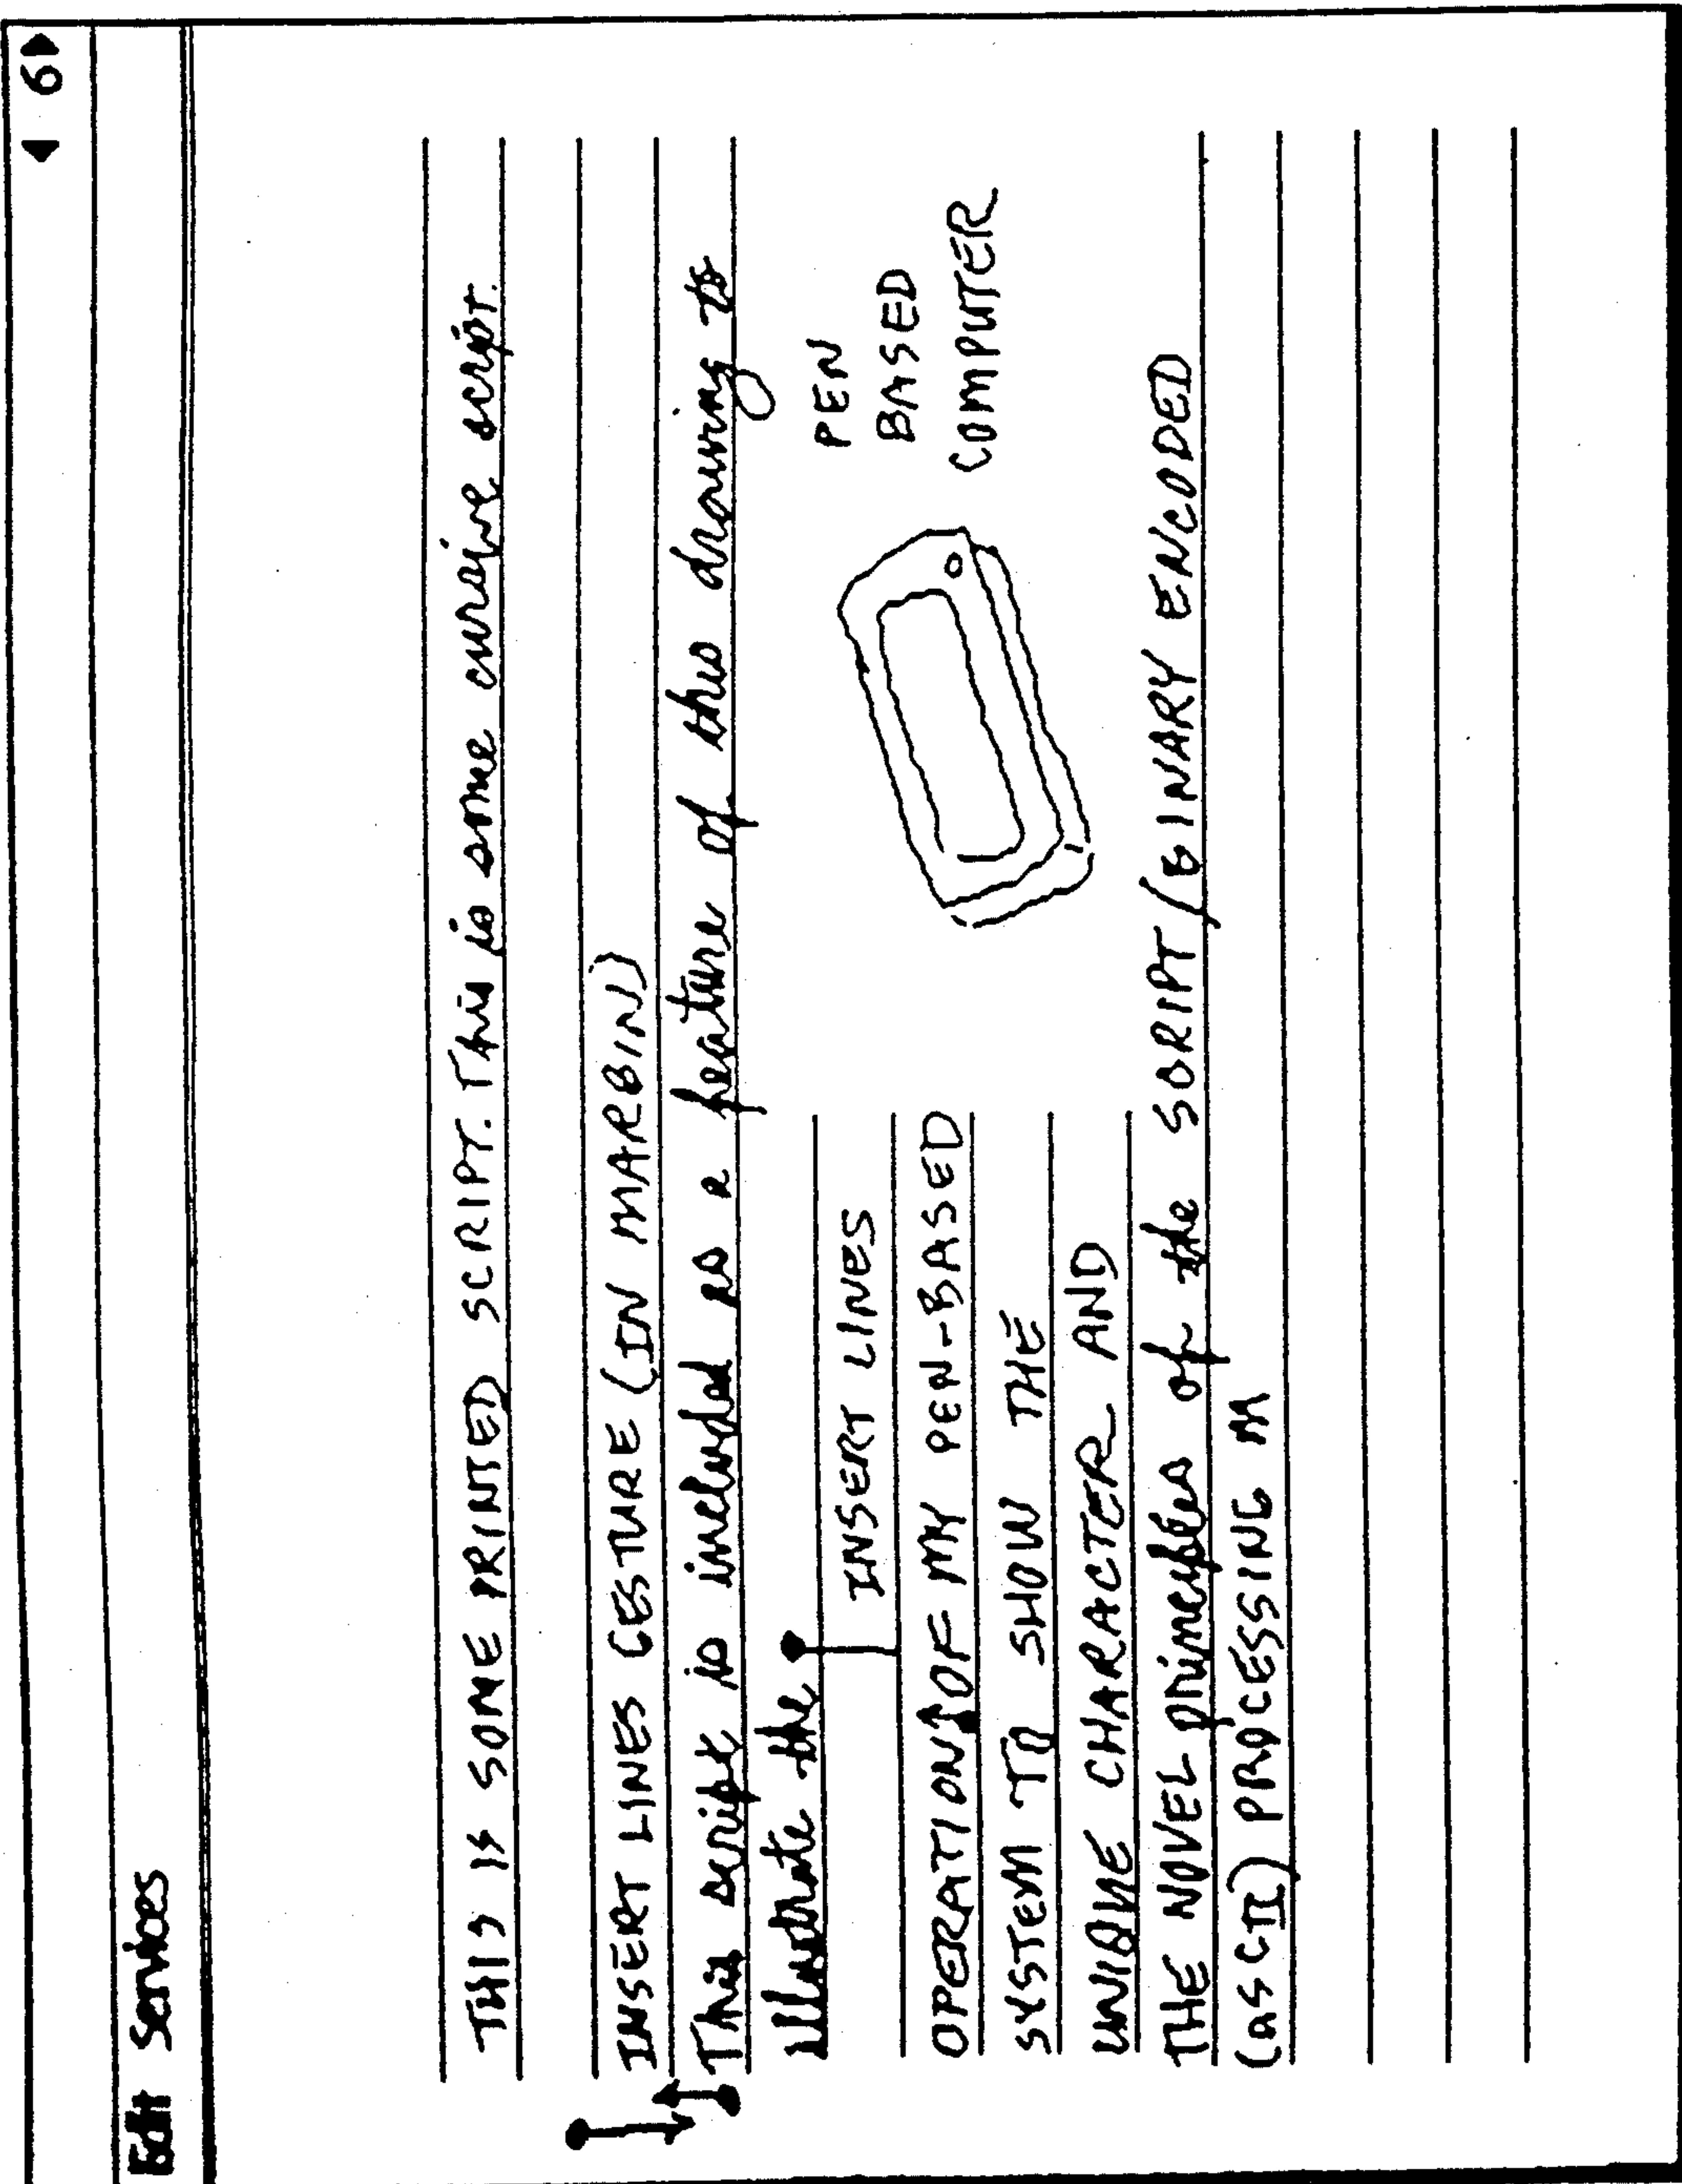 ◀ 6 ▶
Edit Services
THIS IS SOME PRINTED SCRIPT. This is some cursive script.
INSERT LINES GESTURE (IN MARGIN)
This script is included as a feature of this drawing to
illustrate the
INSERT LINES
OPERATION OF MY PEN-BASED
SYSTEM TO SHOW THE
UNIQUE CHARACTER AND
THE NOVEL principles of the SCRIPT/BINARY ENCODED
(asCII) PROCESSING M
PEN
BASED
COMPUTER